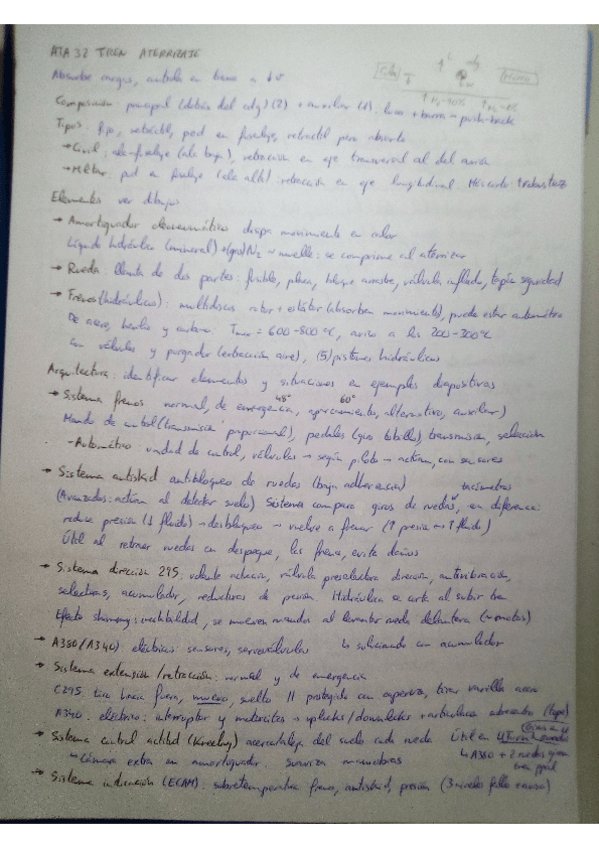 ATA 32 TREN ATERRIZAJE
Absorbe cargas, controla en tierra a ↓v
Composición: principal (detrás del cdg) (2) + auxiliar (1): + barra → push-back
Tipos: fijo, retráctil, pod en fuselaje, retráctil pero abierto
→ Civil: ala-fuselaje (ala baja), retracción en eje transversal al del avión
→ Militar: pod en fuselaje (ala alta): retracción en eje longitudinal. ↑robustez
Elementos ver dibujos
→ Amortiguador oleoneumático disipa movimiento en calor
Líquido hidráulico (mineral) + (gas) N2 → muelle: se comprime al aterrizar
→ Rueda: llanta de dos partes: fusible, placa, bloque arrastre, válvula inflado, tapón seguridad
→ Frenos (hidráulicos): multidiscos rotor + estátor (absorben movimiento), puede estar automático
De acero, berilio y carbono: Tmax = 600-800 ºC, aviso a los 200-300ºC
Con válvulas y purgador (extracción aire), (5) pistones hidráulicos
Arquitectura: identificar elementos y situaciones en ejemplos diapositivas
→ Sistema frenos normal, de emergencia, aparcamiento, alternativo, auxiliar)
45º 60º
Mando de control (transmisión proporcional), pedales (giro tobillo) transmisión, selección
- Automático: unidad de control, válvulas → según piloto → actúan, con sensores
→ Sistema antiskid antibloqueo de ruedas (baja adherencia) tacómetros
(Avanzados: actúan al detectar suelo) Sistema compara giros de ruedas, en diferencia:
reduce presión (↓ fluido) → desbloqueo → vuelve a frenar (↑ presión → ↑ fluido)
Útil al retraer ruedas en despegue, las frena, evita daños
→ Sistema dirección 295: volante actuación, válvula preselectora dirección, antivibración,
selectoras, acumulador, reductoras de presión. Hidráulica se corta al subir tren
Efecto shimmy: inestabilidad, se mueven mandos al levantar rueda delantera
→ A380/A340: eléctricos sensores, servoválvulas ↳ soluciona con acumulador
→ Sistema extensión/retracción: normal y de emergencia
C295 tira hacia fuera, suelto protegido con tirar varilla
A340: eléctrico: interruptor y motorcitos → uplocks/downlocks
→ Sistema control actitud (Kneeling) acercar/aleja del suelo cada rueda Útil en
→ Cámara extra en amortiguador: suaviza maniobras ↳ A380 + 2 ruedas giran tren ppal
→ Sistema indicación (ECAM): sobretemperatura freno, antiskid, presión (3 niveles fallo)